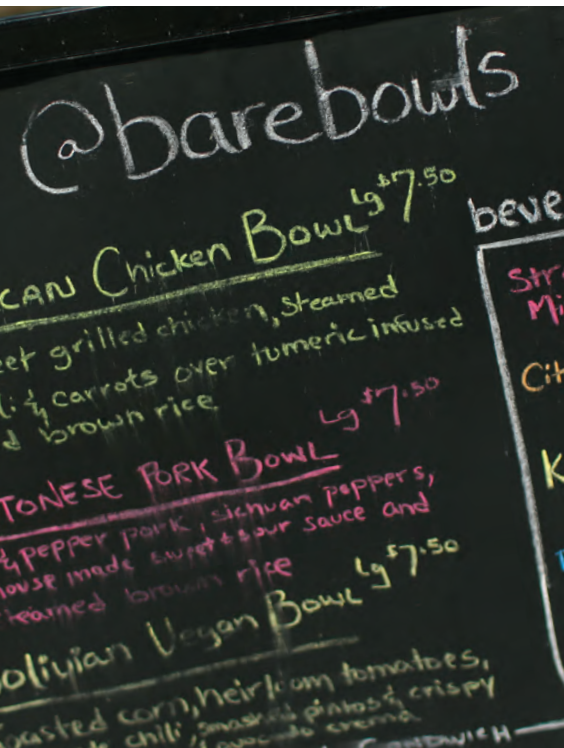 @barebowls
CAN Chicken Bowl Lg $7.50
eet grilled chicken, steamed
& carrots over tumeric infused
d brown rice
TONESE PORK BOWL Lg $7.50
& pepper pork, sichuan peppers,
house made sweet & sour sauce and
steamed brown rice
Bolivian Vegan Bowl Lg $7.50
oasted corn, heirloom tomatoes,
chili, smashed pintos & crispy
avocado crema
SANDWICH
beve
Stra
Mi
Cit
K